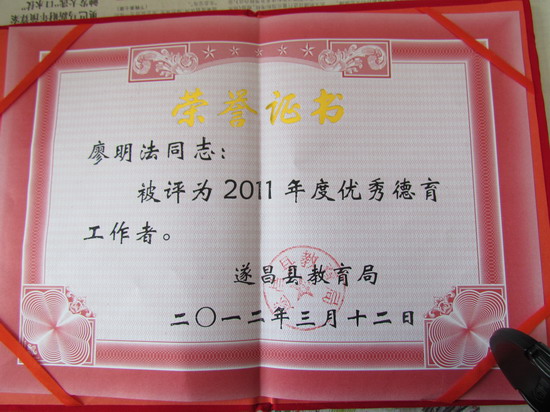 荣誉证书
廖明法同志：
被评为2011年度优秀德育
工作者。
遂昌县教育局
二〇一二年三月十二日